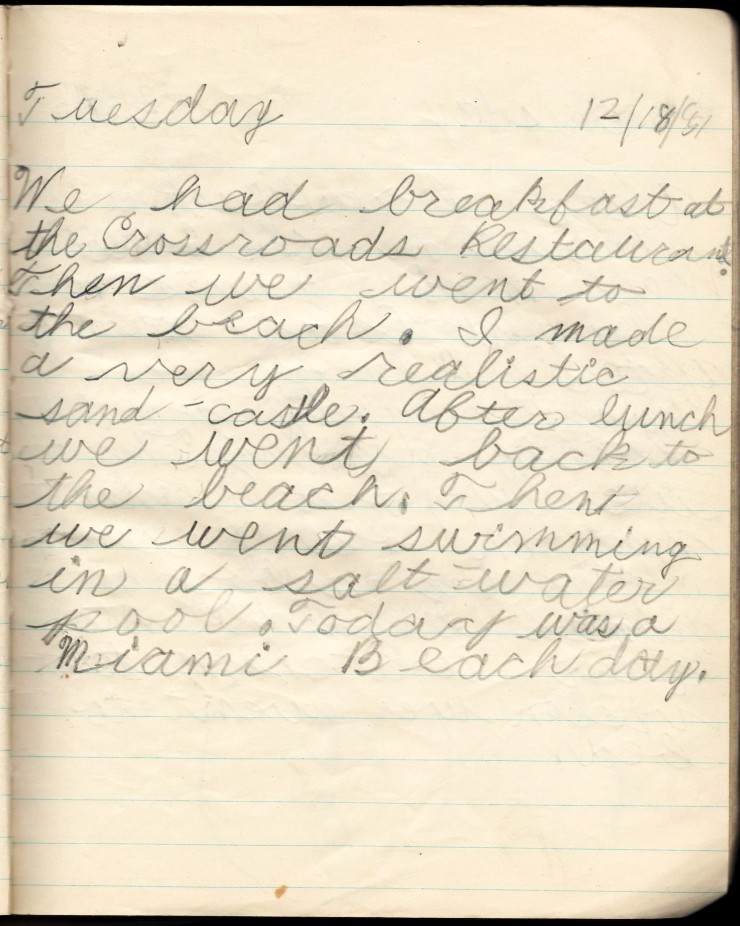 Tuesday 12/18/51
We had breakfast at
the Crossroads Restaurant.
Then we went to
the beach. I made
a very realistic
sand-castle. After lunch
we went back to
the beach. Then
we went swimming
in a salt-water
pool. Today was a
Miami Beach day.